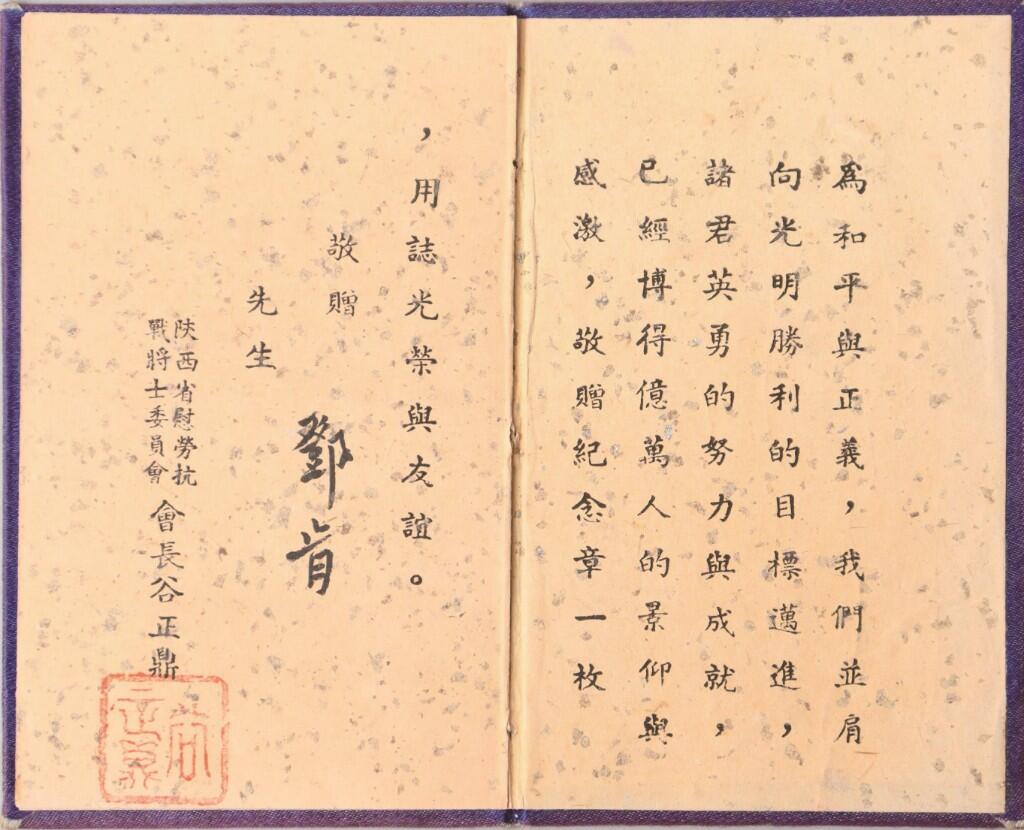 為和平與正義，我們並肩
向光明勝利的目標邁進，
諸君英勇的努力與成就，
已經博得億萬人的景仰與
感激，敬贈紀念章一枚
，用誌光榮與友誼。
敬贈
鄧肯
先生
陝西省慰勞抗
戰將士委員會
會長谷正鼎
谷
正鼎